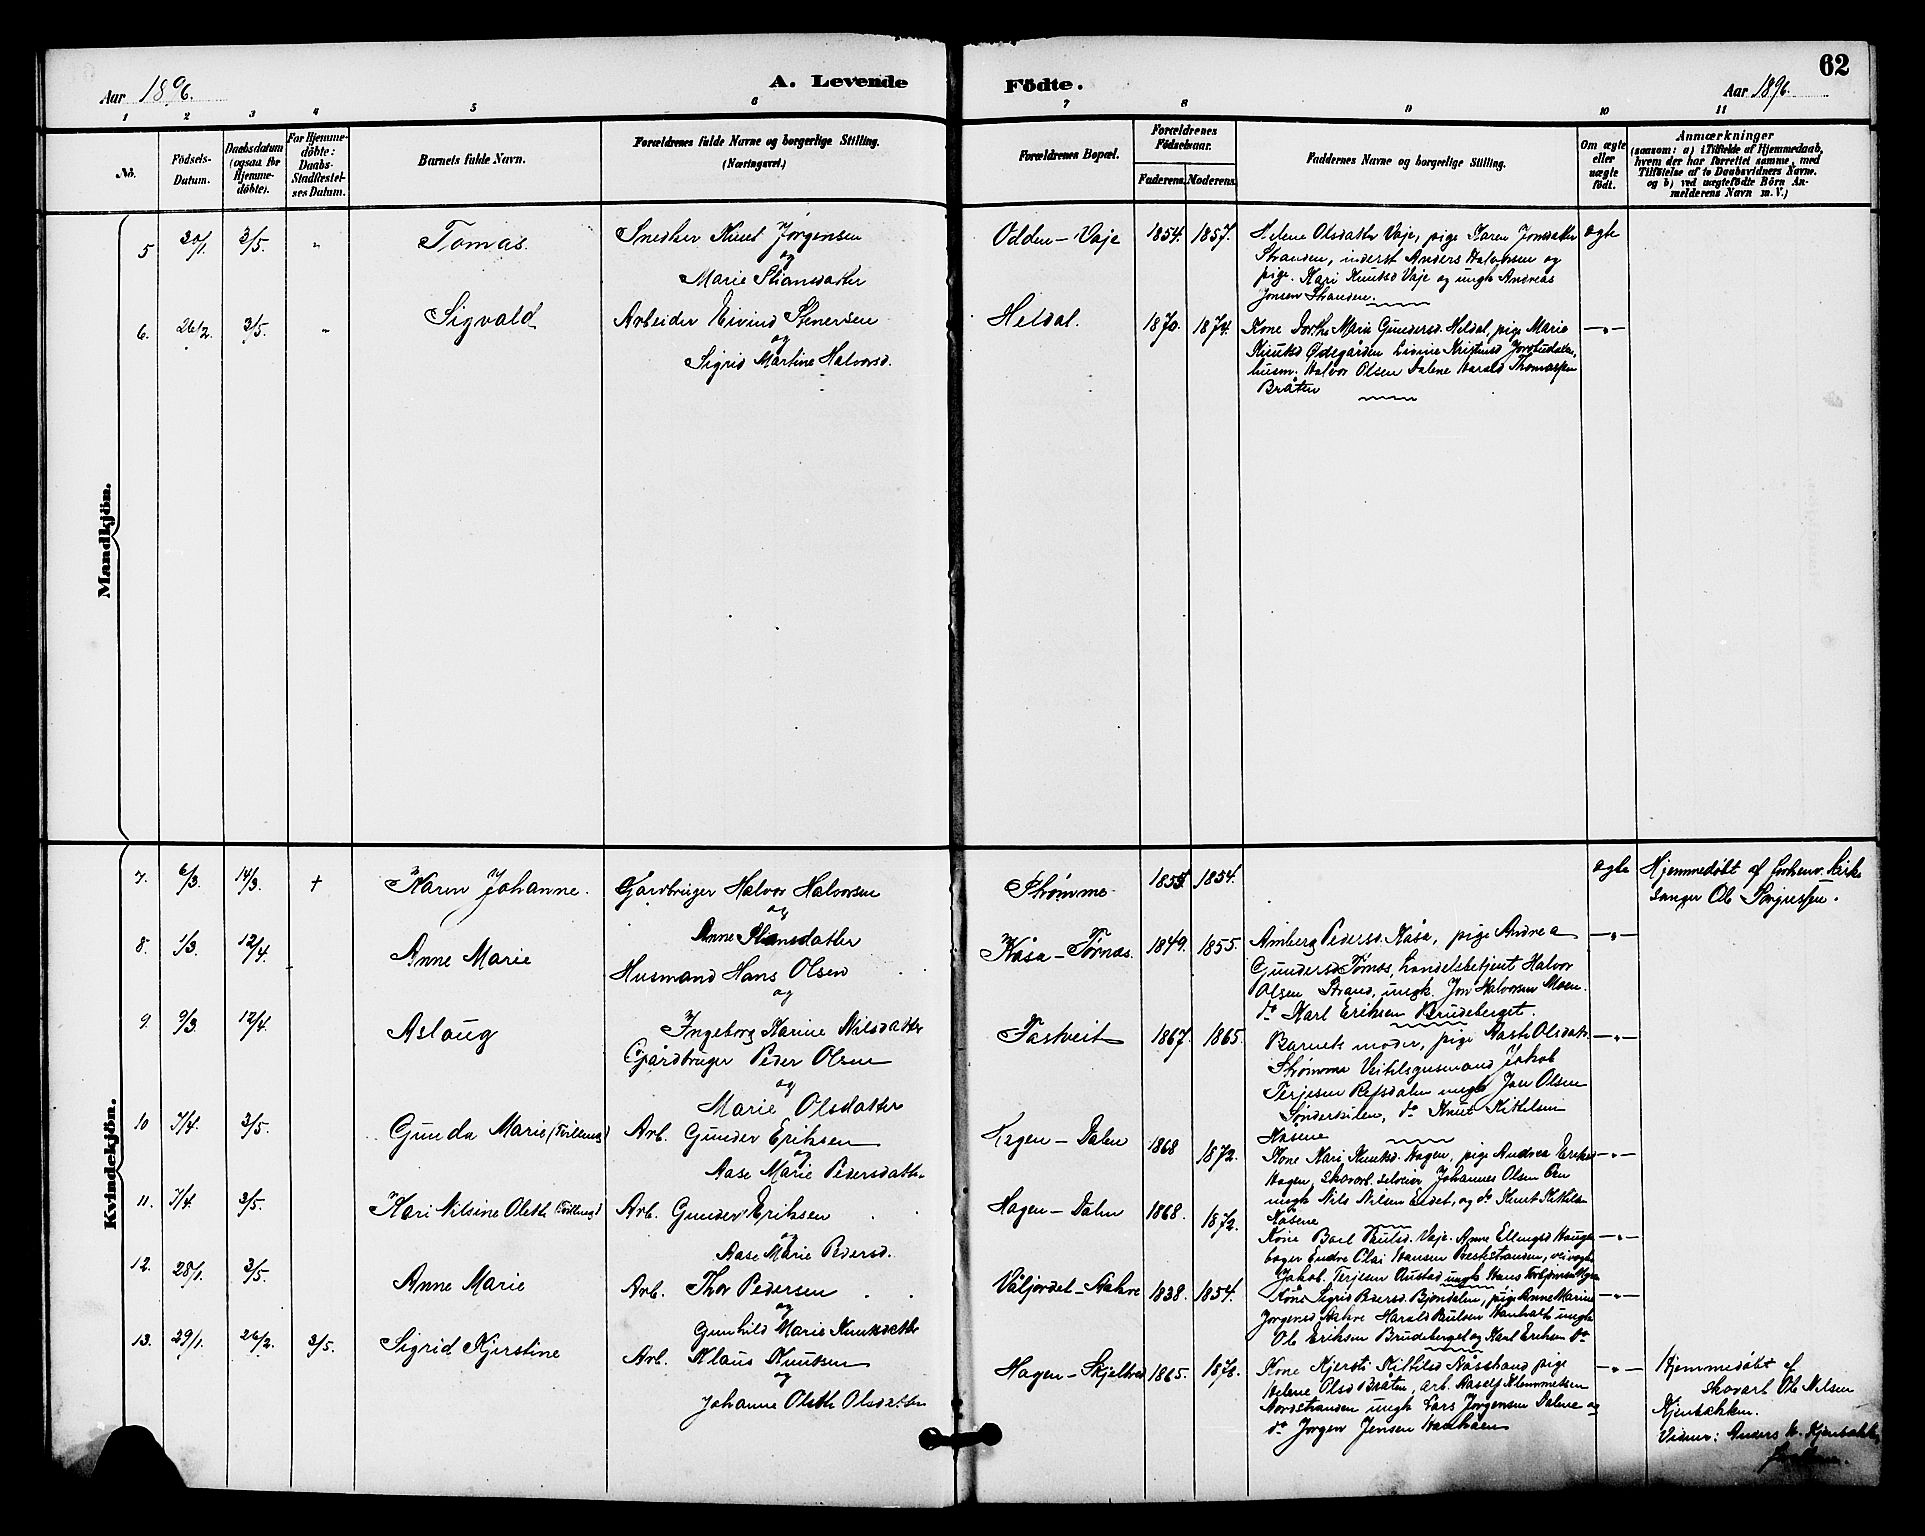 62
Aar 1896.
A. Levende Födte.
Aar 1896.
1 2 3 4 5 6 7 8 9 10 11
No.
Födsels-Datum.
Daabsdatum (ogsaa for Hjemme-döbte).
For Hjemme-döbte: Daabs-Stadfestel-ses Datum.
Barnets fulde Navn.
Forældrenes fulde Navne og borgerlige Stilling.
(Næringsvei.)
Forældrenes Bopæl.
Forældrenes Födselsaar.
Faderens. Moderens.
Faddernes Navne og borgerlige Stilling.
Om ægte eller uægte födt.
Anmærkninger
(saasom: a) i Tilfælde af Hjemmedaab,
hvem der har forrettet samme, med
Tilföielse af to Daabsvidners Navne.
og b) ved uægtefödte Börn An-
melderens Navn m. V.)
Mandkjön.
5 20/1. 3/5. " Tomas. Snedker Knut Jørgensen
og
Marie Stiansdatter
Odden - Vaje 1854. 1857. Helene Olsdatter Vaje, pige Karen Jonsdatter
Stranden, inderst Anders Halvorsen og
pige. Kari Knutsd Vaje og ungk Andreas
Jonsen Stranden.
ægte
6. 26/2. 3/5. " Sigvald Arbeider Eivind Stenersen
og
Sigrid Martine Halvorsd.
Heldal. 1870. 1874. Kone Dorthe Marie Gundersd. Heldal, pige Marie
Knutsd Ødegården
husm. Halvor Olsen Dalene Harald Thomassen
Bråten
—"—
Kvindekjön.
7. 6/3. 14/3. + Karen Johanne. Gårdbruger Halvor Halvorsen
og
Anne Stiansdatter
Strømme 1855. 1854.
ægte Hjemmedøbt af forhenv. Kirke
sanger Ole
8. 1/3. 12/4. Anne Marie Husmand Hans Olsen
og
Ingeborg Karine Nilsdatter
Kåsa - Tørnes. 1849. 1855. Amberg Pedersd. Kåsa, pige Andrea
Gundersd Tørnes, Handelsbetjent Halvor
Olsen Strand, ungk. Jon Halvorsen Moen.
do Karl Eriksen Brudeberget.
—"—
9. 9/3. 12/4. Aslaug Gårdbruger Peder Olsen
og
Marie Olsdatter
Tastveit 1867. 1865. Barnets moder, pige Olsdatt.
Strømme Jakob
Terjesen Refsdalen ungk Jon Olsen
do Knut Kittelsen
Kåsene
—"—
10 7/4. 3/5. Gunda Marie (Tvilling) Arb. Gunder Eriksen
og
Aase Marie Pedersdatter
Hagen - Dalen 1868 1872. Kone Kari Knutsd. Hagen, pige Andrea Eriksd
Hagen, Johannes Olsen
ungk Nils Nilsen Eidet, og do Knut Kittilsen
Kåsene
—"—
11. 7/4. 3/5. Kari Nilsine Oleth (Tvilling) Arb. Gunder Eriksen
og
Aase Marie Pedersd.
Hagen - Dalen 1868. 1872. Kone Boel Paulsd. Vaje. Anne Ellingsd
Endre Olai Hansen Prestestranden,
Jakob Terjesen ungk Hans
—"—
12. 28/1. 3/5. Anne Marie Arb. Thor Pedersen
og
Gunhild Marie Knutsdatter
Våljordet - Aakre 1838. 1854. Kone Sigrid Pedersd Bjondalen, pige Anne Marine
Jørgensd Aakre Harald Paulsen ungk
Ole Eriksen Brudeberget og Karl Eriksen do
—"—
13. 29/1. 26/2. 3/5. Sigrid Kjerstine Arb. Klaus Knutsen
og
Johanne Oleth Olsdatter
Hagen - 1865. 1876. Kone Kjersti Kittilsd pige
Helene Olsd Bråten, arb. Klemmetsen
Nordstranden ungk Lars Jørgensen Dalene og
do Jørgen Jensen
—"—
Hjemmedøbt af
skovarb Ole Nilsen
Vidner: Anders